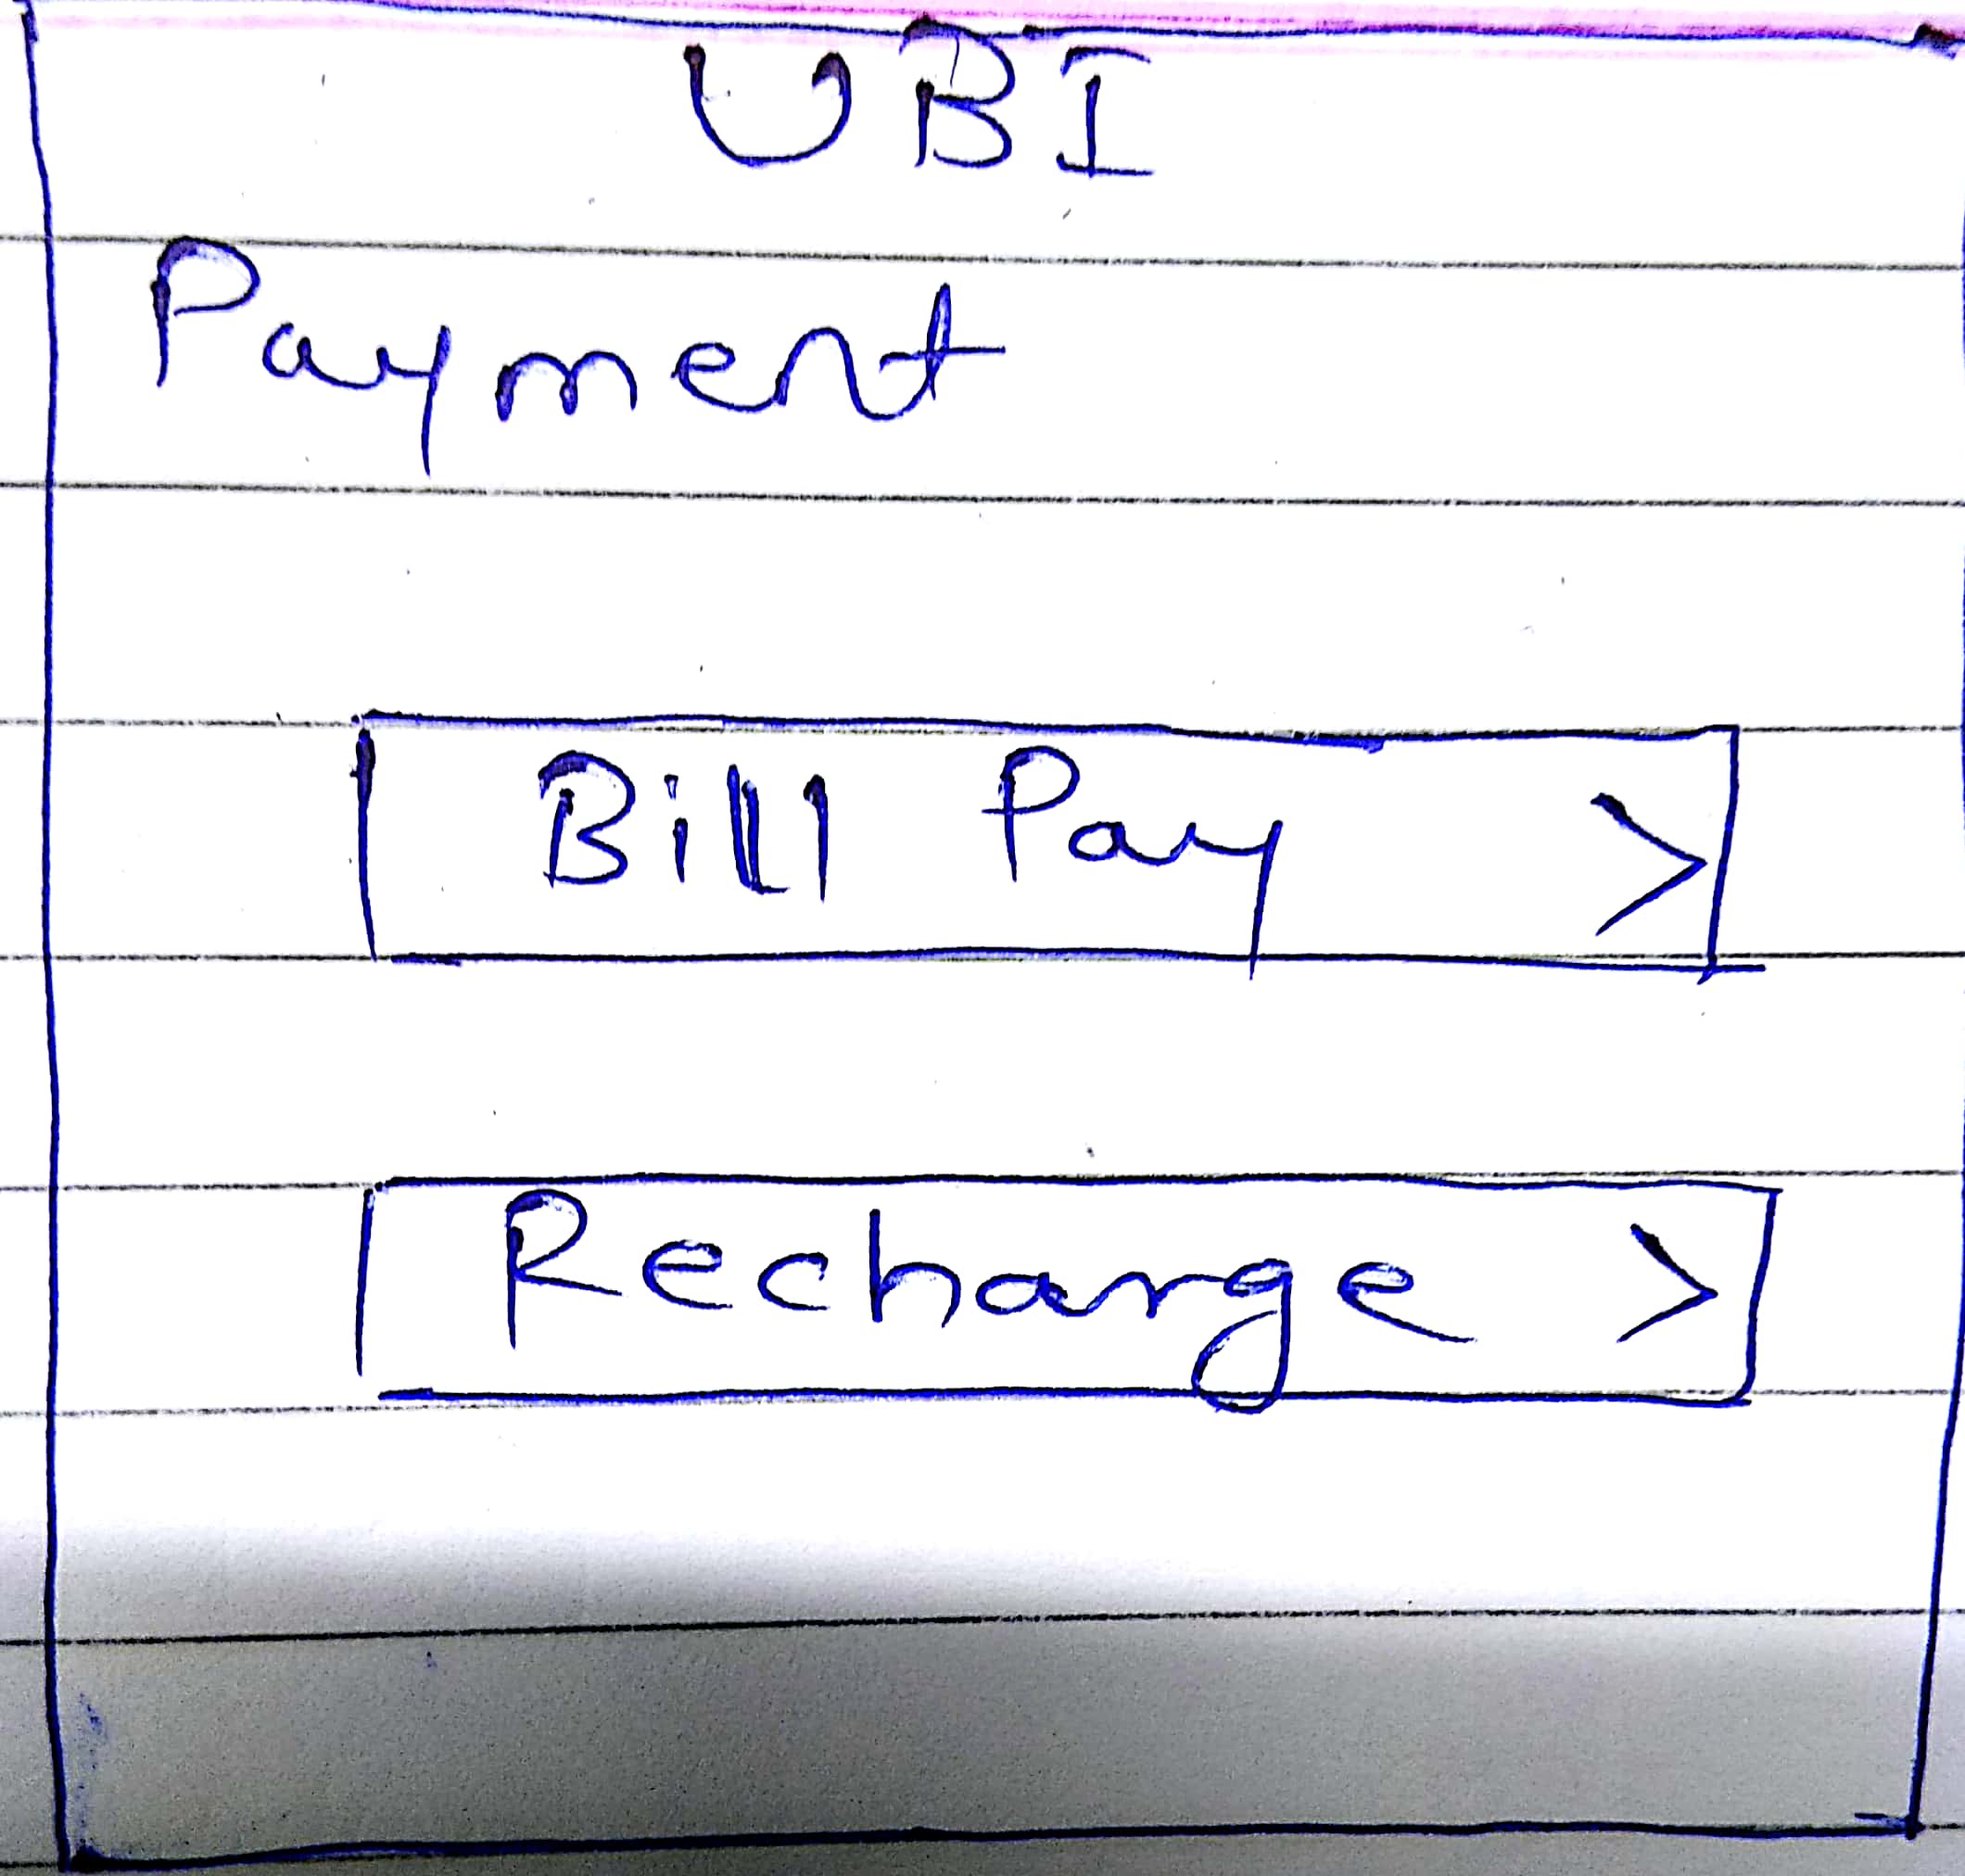 UBI
Payment
Bill Pay >
Recharge >